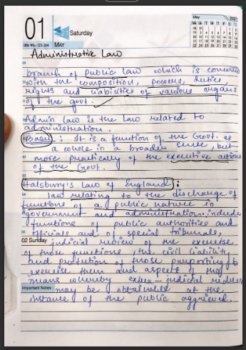 01
Saturday
May
May
Administrative Law
branch of public law which is concerned
with the composition, powers, duties
rights and liabilities of various organs
of the govt.
Admin law is the law related to
administration.
: It is a function of the Govt. as
a whole in a broader sense, but
more practically of the executive actions
of the Govt.
Halsbury's Law of England :
law relating to the discharge of
functions of a public nature in
government and administration. includes
functions of public authorities and
officials and of special tribunals,
02 Sunday
judicial review of the exercise
of those functions, the civil liability
and protection of those purporting to
exercise them and aspects of the
means whereby extra-judicial redress
Important Notes
may be obtainable at the
instance of the public aggrieved.